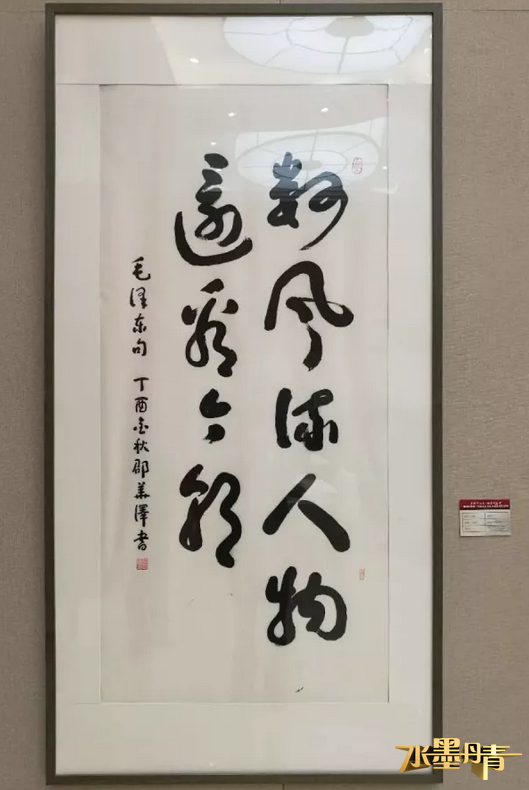 数风流人物
還看今朝
毛泽东句 丁酉金秋邵華澤書
水墨丹青